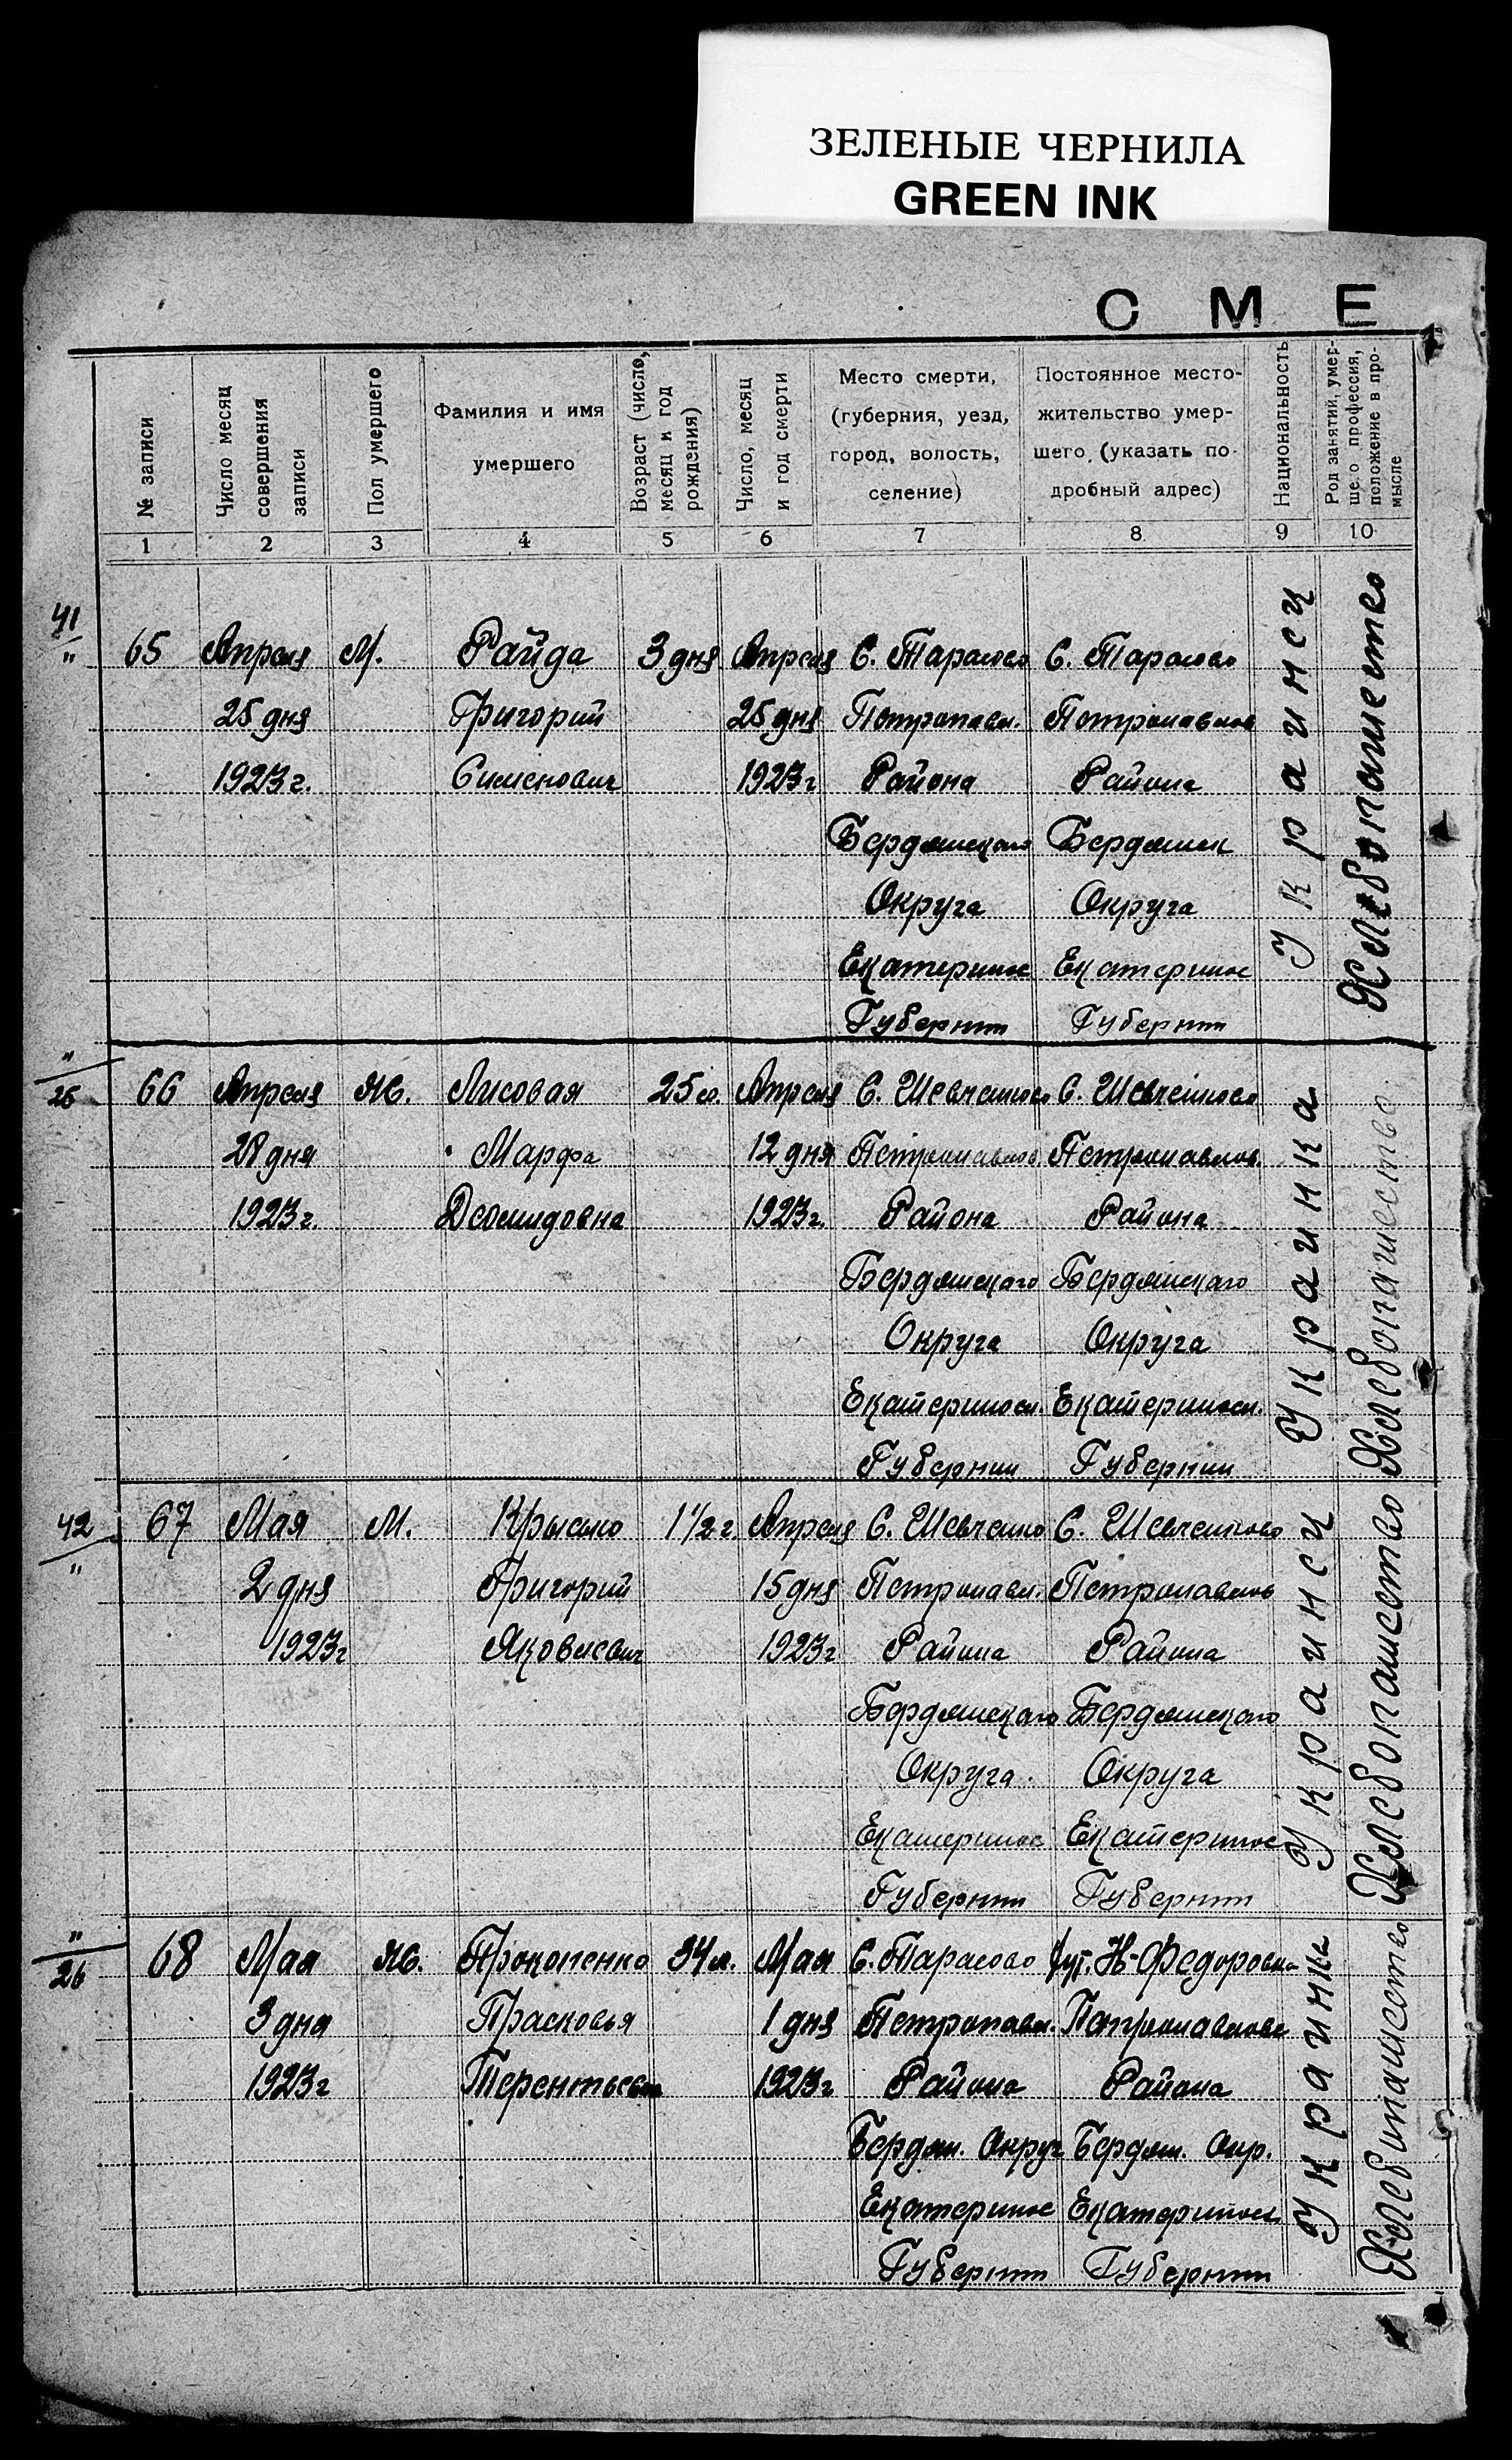 ЗЕЛЕНЫЕ ЧЕРНИЛА
GREEN INK
С М Е
№ записи
Число месяц совершения записи
Пол умершего
Фамилия и имя умершего
Возраст (число, месяц и год рождения)
Число, месяц и год смерти
Место смерти, (губерния, уезд, город, волость, селение)
Постоянное местожительство умершего, (указать подробный адрес)
Национальность
Род занятий, умерше.о профессия, положение в промысле
1 2 3 4 5 6 7 8 9 10
41 "
65 Апреля М. Райда 3 дня Апреля С. Тарасово С. Тарасово
25 дня Григорий 25 дня Петропавл. Петропавлов
1923 г. Сименович 1923 г Района Района
Бердянскаго Бердянск
Округа Округа
Екатеринос Екатеринос
Губернии Губернии
Украинец
Хлебопашество
" 25
66 Апреля Ж. Лисовая 25 л. Апреля С. Шевченково С. Шевченково
28 дня Марфа 12 дня Петропавлов Петропавлов.
1923 г. Деомидовна 1923 г. Района Района
Бердянскаго Бердянскаго
Округа Округа
Екатериносл. Екатериносл.
Губернии Губернии
Украинка
Хлебопашество
42 "
67 Мая М. Крысько 1 1/2 г. Апреля С. Шевченко С. Шевченково
2 дня Григорий 15 дня Петропавл. Петропавлов
1923 г Яковлевич 1923 г Района Района
Бердянскаго Бердянскаго
Округа. Округа
Екатеринос Екатеринос
Губернии Губернии
Украинец
Хлебопашество
" 26
68 Мая Ж. Прокопенко 34 л. Мая С. Тарасово Хут. Н-Федоровка
3 дня Прасковья 1 дня Петропавл. Петропавловс
1923 г Терентьевна 1923 г Района Района
Бердян. Округ Бердян. Окр.
Екатеринос Екатериносл
Губернии Губернии
Украинка
Хлебопашество